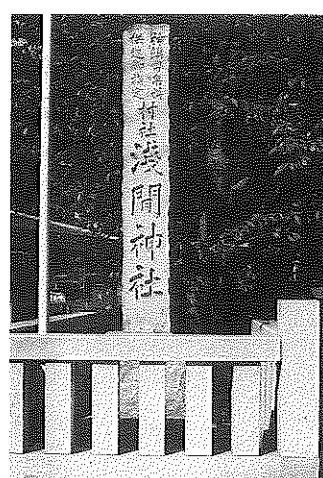 村社淺間神社